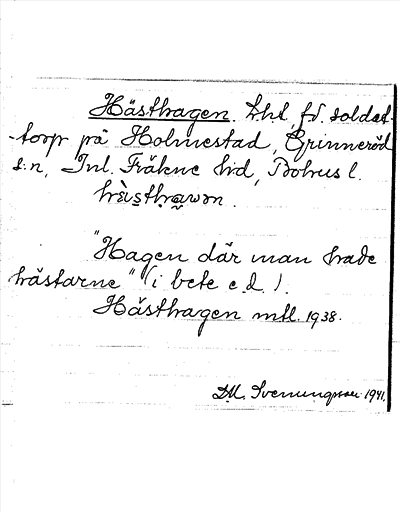 Hästhagen. Lht, f.d. soldat-
-torp på Holmestad, Grinneröd
s:n, Inl. Fräkne hd, Bohus l.
"Hagen där man hade
hästarne" (i bete e.d.).
Hästhagen mtl. 1938.
D.M. Svenungsson 1941.